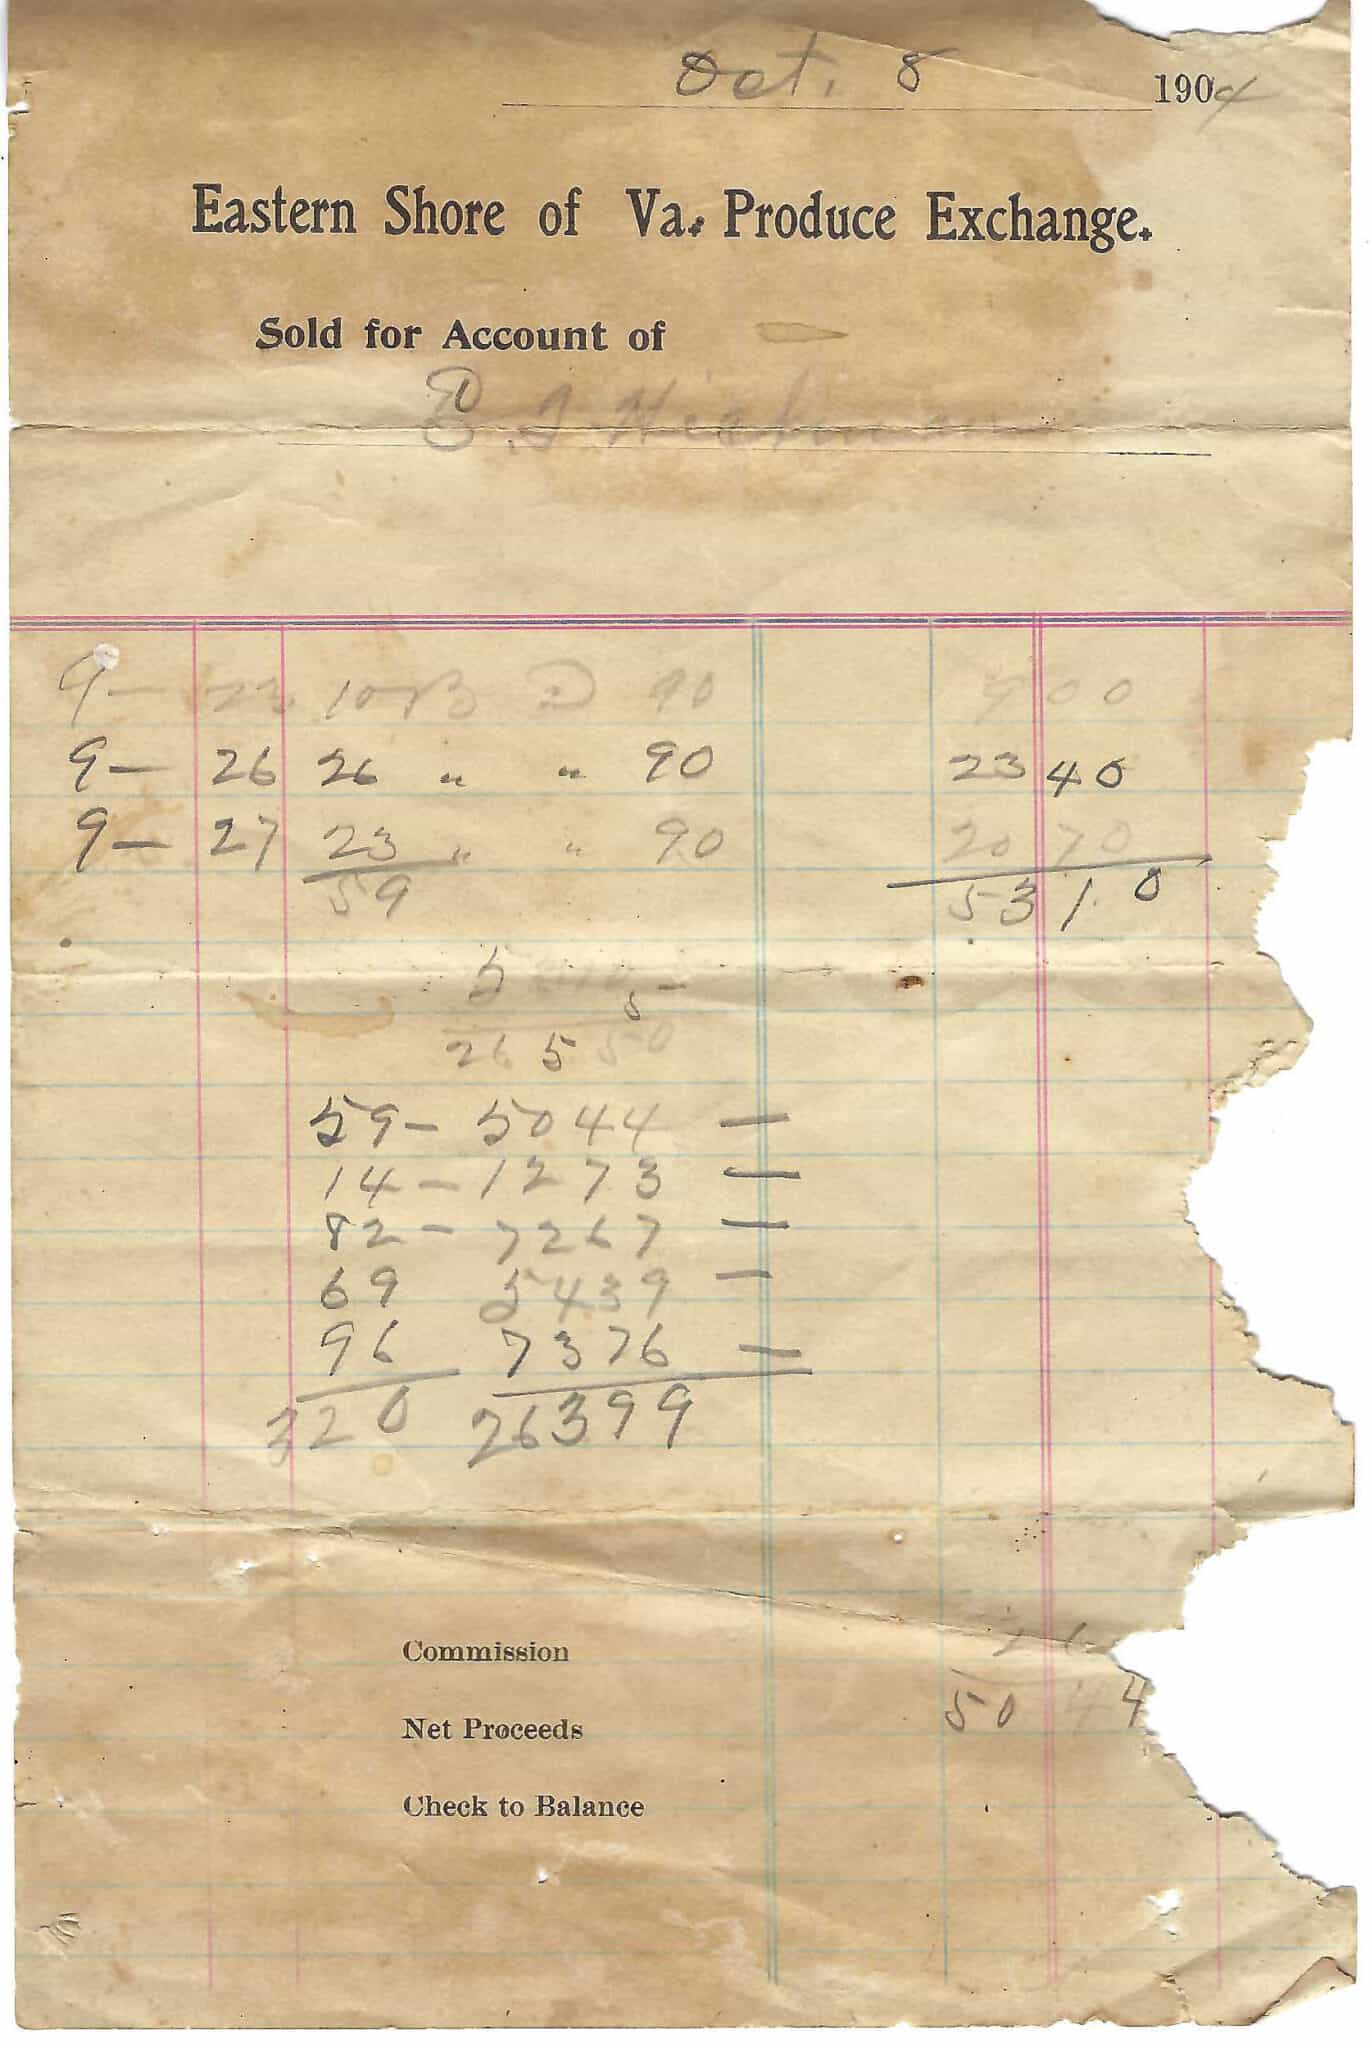 Oct. 8 1904
Eastern Shore of Va. Produce Exchange.
Sold for Account of
E. J. Hickman
9— 23 10 B @ 90 9 00
9— 26 26 " " 90 23 40
9— 27 23 " " 90 20 70
59 53 10
5
265 50
59 — 5044 —
14 — 1273 —
82 — 7267 —
69 5439 —
96 7376 —
320 26399
Commission 2 6
Net Proceeds 50 44
Check to Balance